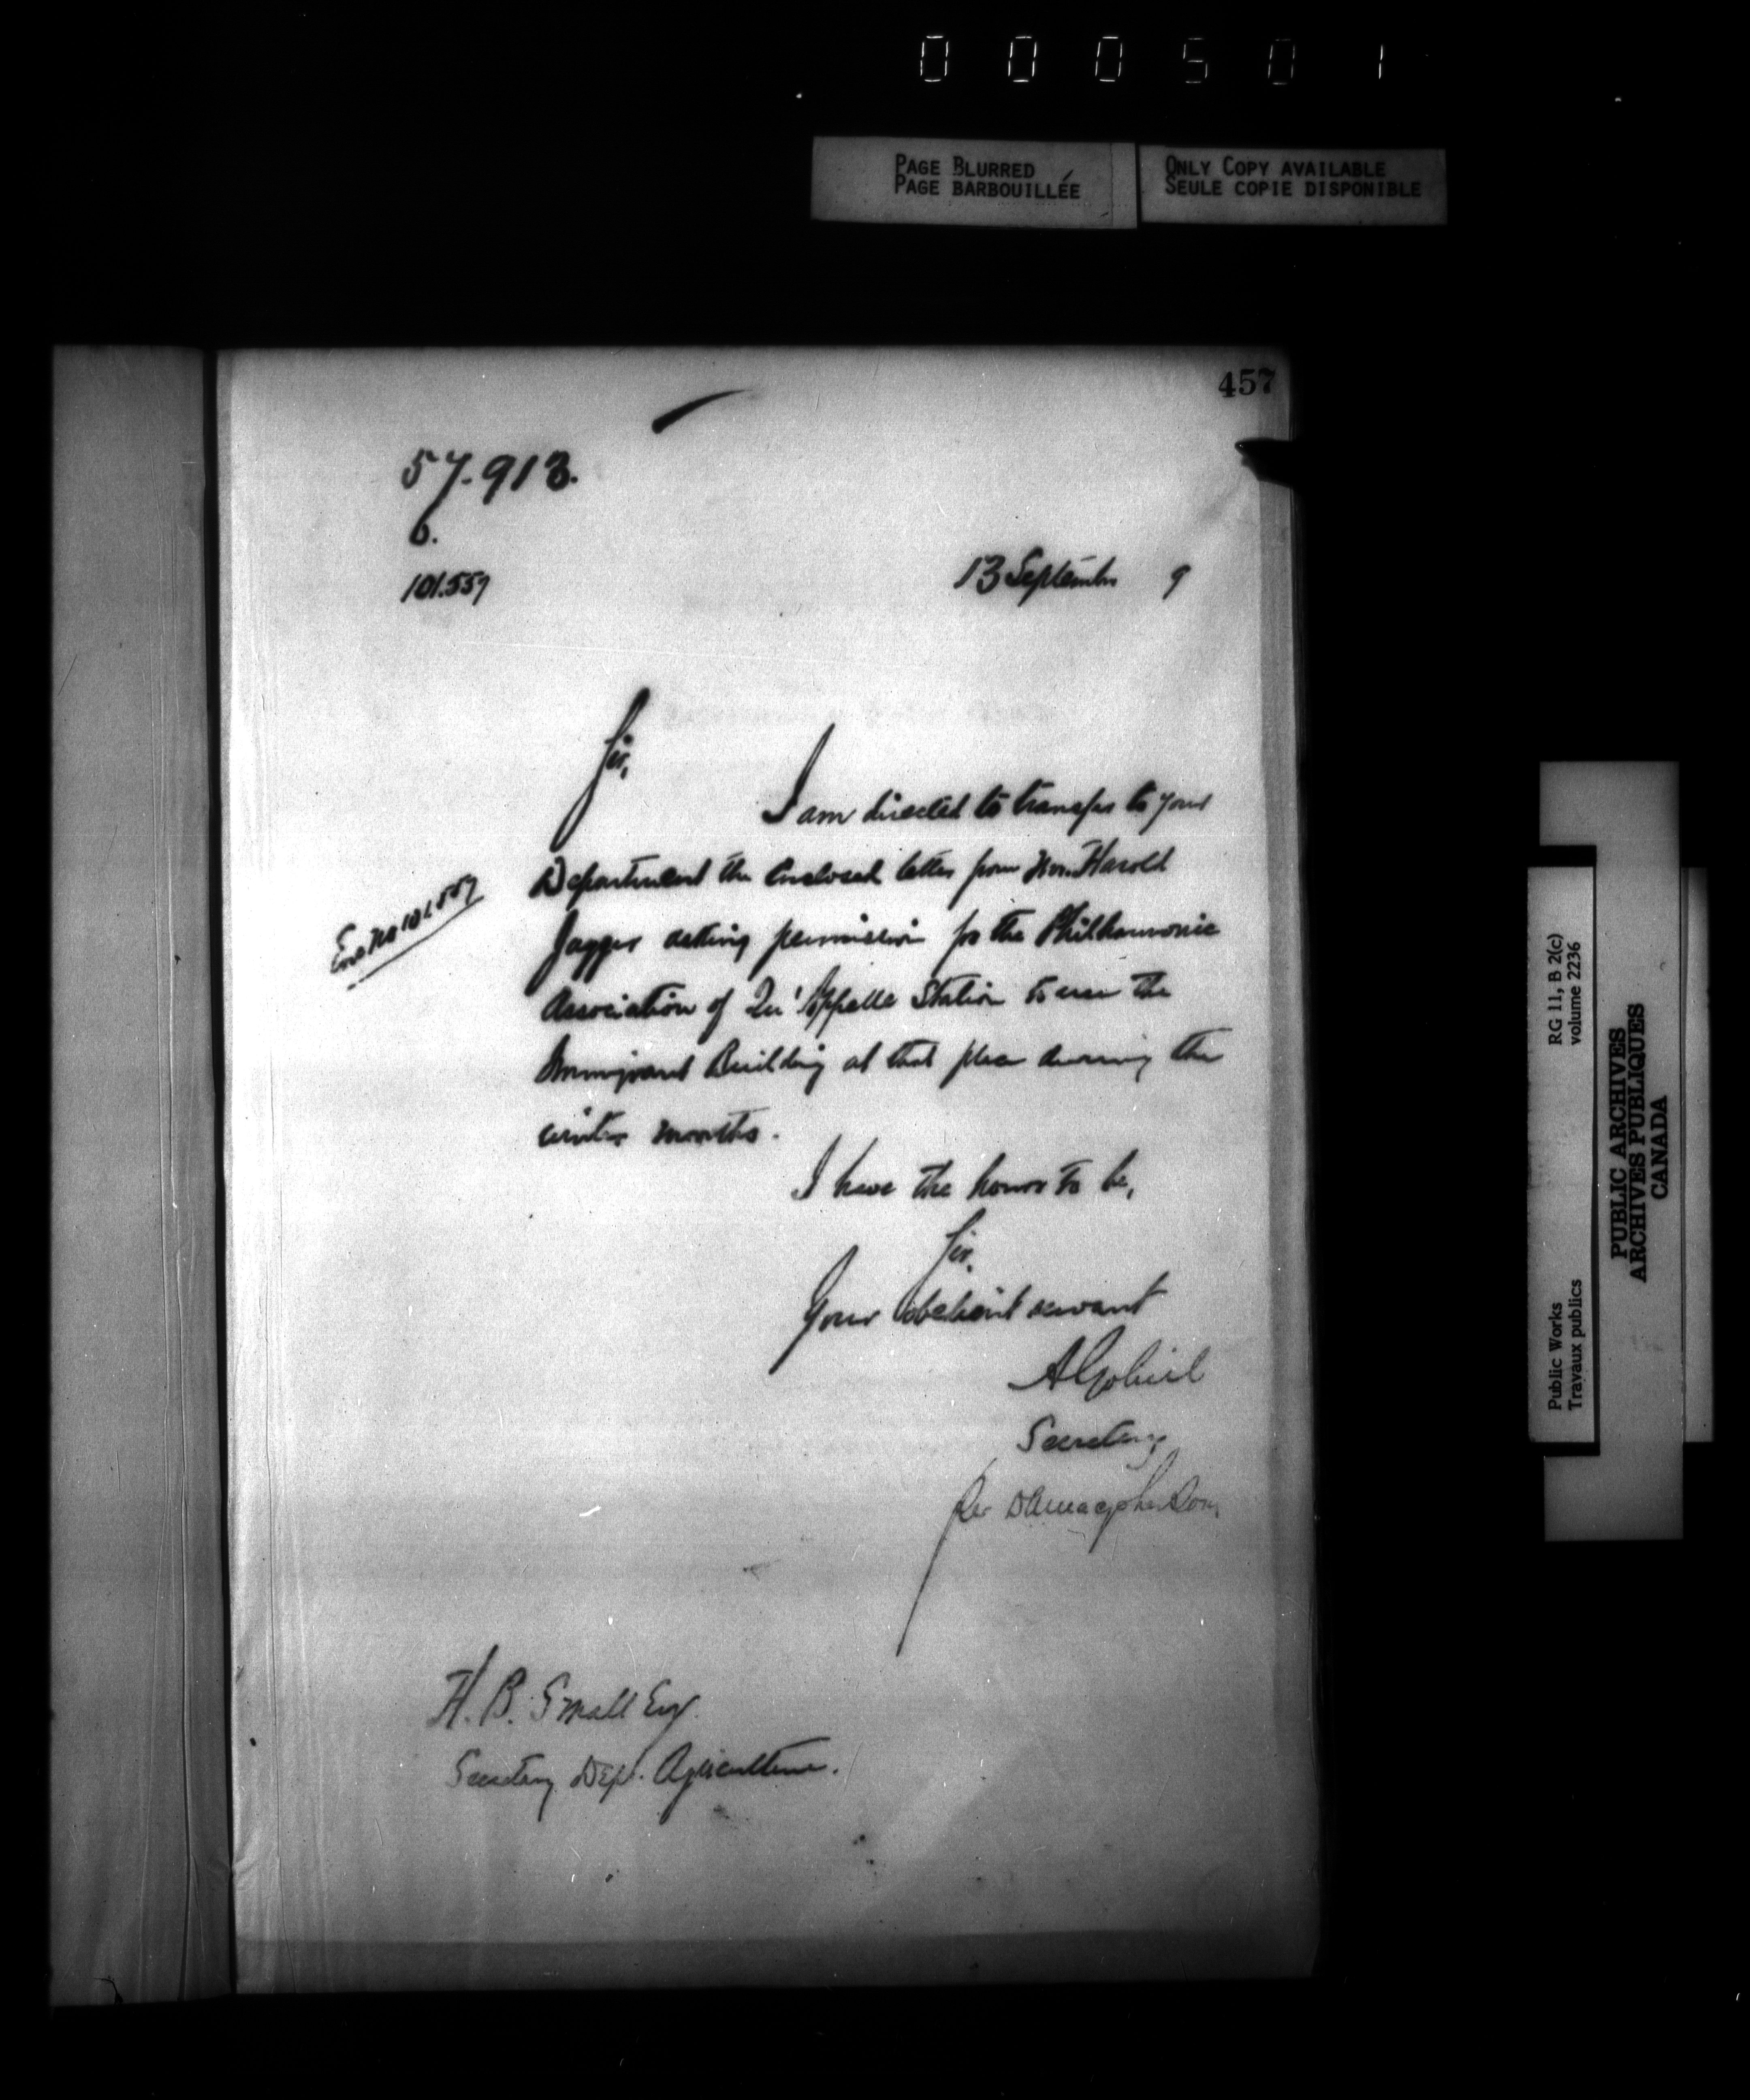 000501
PAGE BLURRED
PAGE BARBOUILLÉE
ONLY COPY AVAILABLE
SEULE COPIE DISPONIBLE
457
57.913.
6.
101.557
13 September 9
Sir,
I am directed to transfer to your
Department the enclosed letter from Harold
Jagger asking permission for the Philharmonic
Association of Qu'Appelle Station to use the
Immigrant Building at that place during the
winter months.
Enc No 101.557
I have the honor to be,
Sir,
Your obedient servant
A Gobeil
Secretary
Per DA Macpherson
H. B. Small Esq.
Secretary Dept. Agriculture.
RG 11, B 2(c)
volume 2236
Public Works
Travaux publics
PUBLIC ARCHIVES
ARCHIVES PUBLIQUES
CANADA